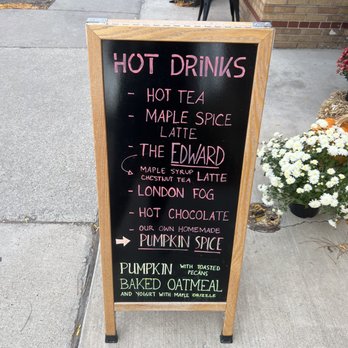 HOT DRiNKS
- HOT TEA
- MAPLE SPICE
LATTE
- THE EDWARD
MAPLE SYRUP
CHESTNUT TEA LATTE
- LONDON FOG
- HOT CHOCOLATE
- OUR OWN HOMEMADE
PUMPKIN SPICE
PUMPKIN WITH TOASTED
PECANS
BAKED OATMEAL
AND YOGURT WITH MAPLE DRIZZLE